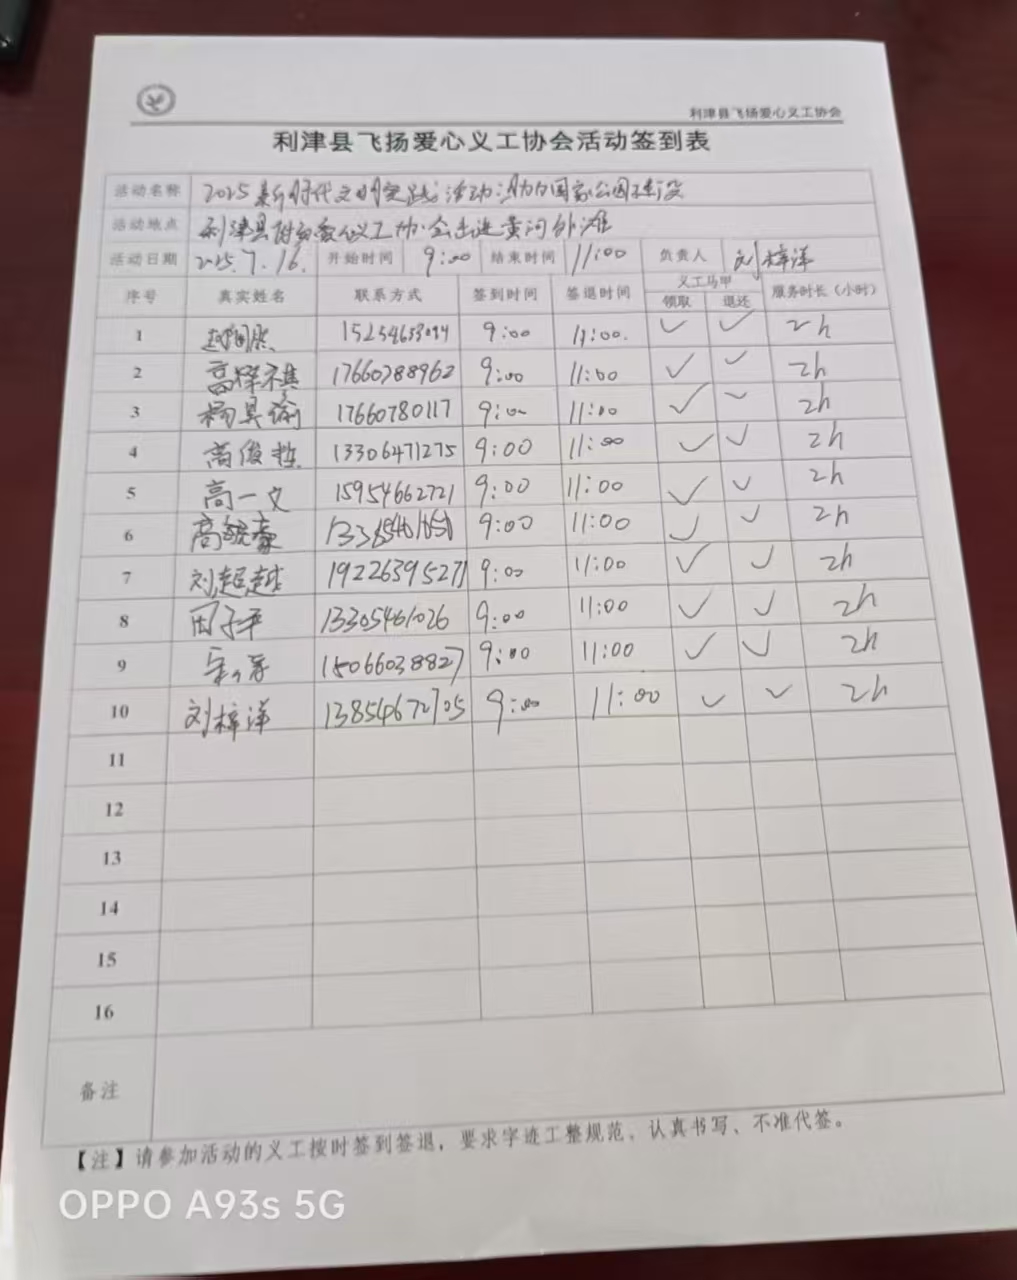 利津县飞扬爱心义工协会
利津县飞扬爱心义工协会活动签到表
活动名称 2025新时代文明实践活动:助力国家公园建设
活动地点 利津县 爱心义工协会走进黄河外滩
活动日期 2025.7.16. 开始时间 9:00 结束时间 11:00 负责人 刘梓洋
序号 真实姓名 联系方式 签到时间 签退时间 义工马甲 领取 退还 服务时长(小时)
1 9:00 11:00. ✓ ✓ 2h
2 17660788962 9:00 11:00 ✓ ✓ 2h
3 17660780117 9:00 11:00 ✓ ✓ 2h
4 高俊哲 13306471275 9:00 11:00 ✓ ✓ 2h
5 高一文 15954662721 9:00 11:00 ✓ ✓ 2h
6 9:00 11:00 ✓ ✓ 2h
7 刘超越 19226395271 9:00 11:00 ✓ ✓ 2h
8 田子平 13305461026 9:00 11:00 ✓ ✓ 2h
9 15066038827 9:00 11:00 ✓ ✓ 2h
10 刘梓洋 13854672705 9:00 11:00 ✓ ✓ 2h
11
12
13
14
15
16
备注
【注】请参加活动的义工按时签到签退，要求字迹工整规范、认真书写、不准代签。
OPPO A93s 5G